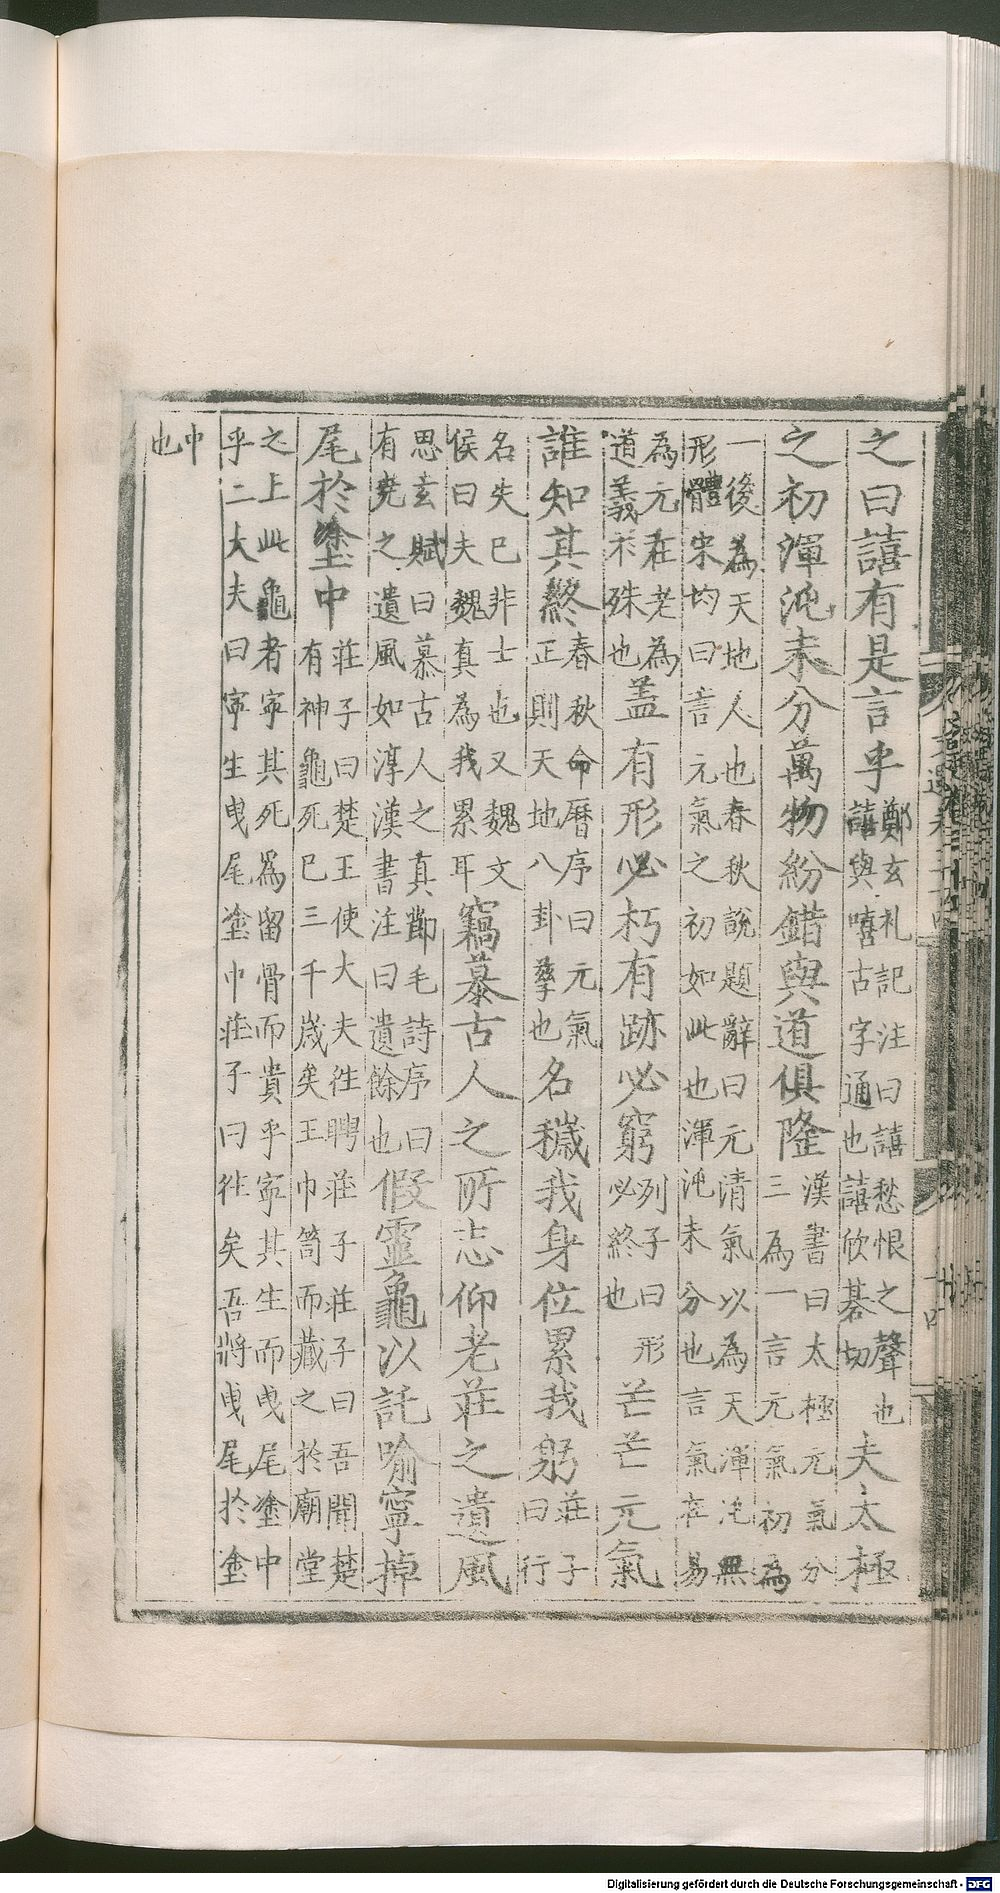 之曰譆有是言乎鄭玄礼記注曰譆愁恨之聲也譆與嘻古字通也譆欣碁切夫太極
之初渾沌未分萬物紛錯與道俱隆漢書曰太極元氣分三為一言元氣初為
一後為天地人也春秋說題辭曰元清氣以為天渾沌無形體宋均曰言元氣之初如此也渾沌未分也言氣在易
為元在老為道義不殊也盖有形必朽有跡必窮列子曰形必終也芒芒元氣
誰知其終春秋命曆序曰元氣正則天地八卦孳也名穢我身位累我躬莊子曰行
名失已非士也又魏文侯曰夫魏真為我累耳竊慕古人之所志仰老莊之遺風
思玄賦曰慕古人之真節毛詩序曰有堯之遺風如淳漢書注曰遺餘也假靈龜以託喻寧掉
尾於塗中莊子曰楚王使大夫徃聘莊子莊子曰吾聞楚有神龜死巳三千歳矣王巾笥而藏之於廟堂
之上此龜者寜其死為留骨而貴乎寜其生而曳尾塗中乎二大夫曰寜生曳尾塗巾莊子曰徃矣吾將曳尾於塗
中也
Digitalisierung gefördert durch die Deutsche Forschungsgemeinschaft - DFG